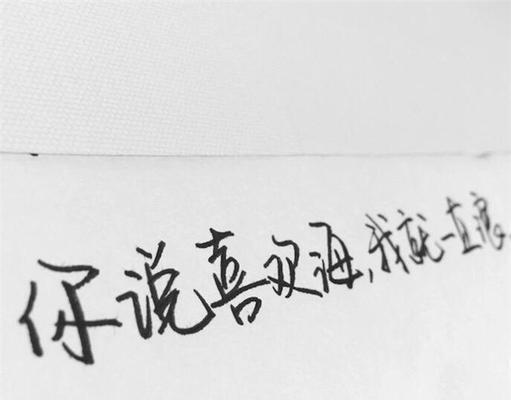 你说喜欢海，我就一直浪。